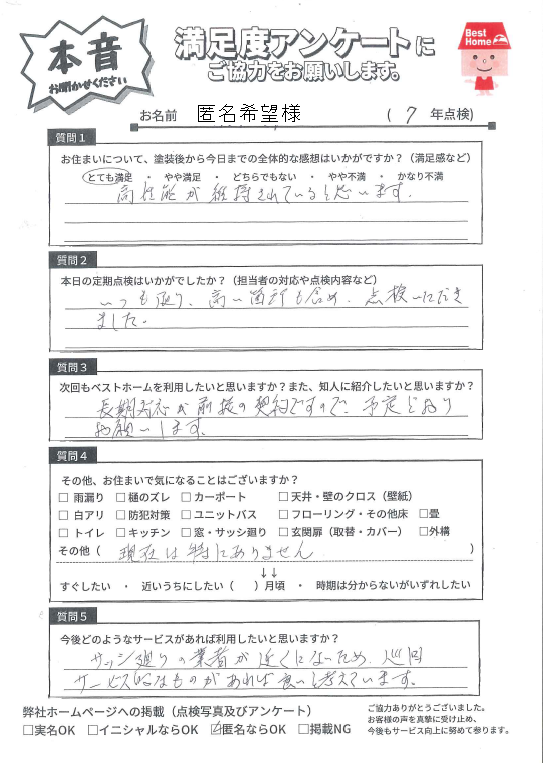 本音
お聞かせください
満足度アンケートに
ご協力をお願いします。
Best Home
お名前 匿名希望様 ( 7 年点検)
質問1
お住まいについて、塗装後から今日までの全体的な感想はいかがですか？（満足感など）
とても満足 ・ やや満足 ・ どちらでもない ・ やや不満 ・ かなり不満
高性能が維持されていると思います.
質問2
本日の定期点検はいかがでしたか？（担当者の対応や点検内容など）
いつも通り、高い箇所も含め、点検いただき
ました。
質問3
次回もベストホームを利用したいと思いますか？また、知人に紹介したいと思いますか？
長期対応が前提の契約ですので、予定どおり
お願いします。
質問4
その他、お住まいで気になることはございますか？
□ 雨漏り □ 樋のズレ □ カーポート □ 天井・壁のクロス（壁紙）
□ 白アリ □ 防犯対策 □ ユニットバス □ フローリング・その他床 □畳
□ トイレ □ キッチン □ 窓・サッシ廻り □ 玄関扉（取替・カバー） □外構
その他（ 現在は特にありません ）
↓↓
すぐしたい ・ 近いうちにしたい（ ）月頃 ・ 時期は分からないがいずれしたい
質問5
今後どのようなサービスがあれば利用したいと思いますか？
サッシ廻りの業者が近くにないため、巡回
サービス的なものがあれば良いと考えています。
弊社ホームページへの掲載（点検写真及びアンケート）
□実名OK □イニシャルならOK ☑匿名ならOK □掲載NG
ご協力ありがとうございました。
お客様の声を真摯に受け止め、
今後もサービス向上に努めて参ります。